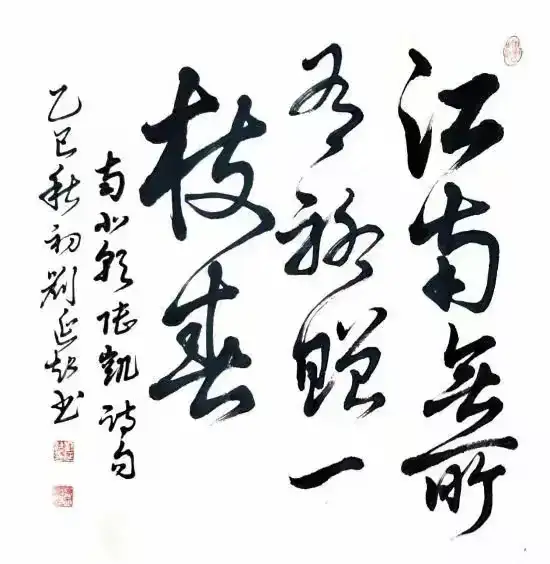 江南無所
有聊贈一
枝春
南北朝陸凱詩句
乙巳秋初劉延超书